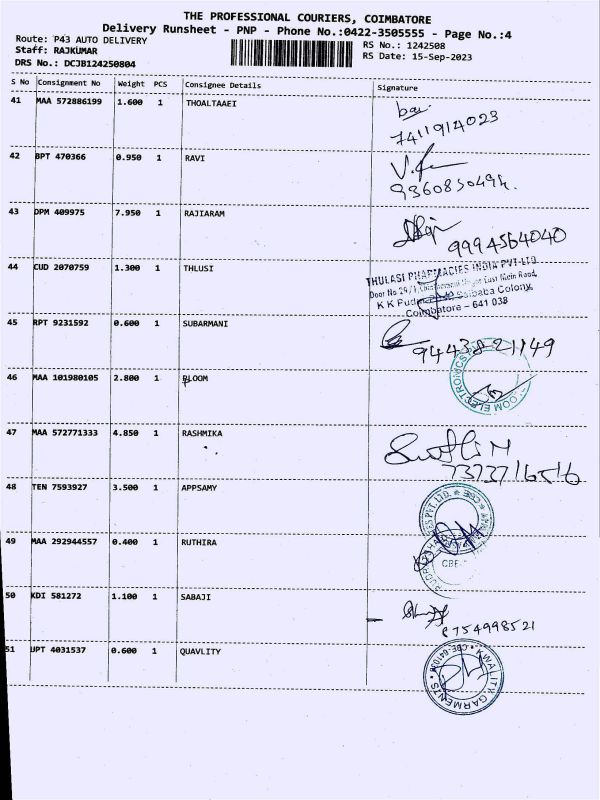 THE PROFESSIONAL COURIERS, COIMBATORE
Delivery Runsheet - PNP - Phone No.:0422-3505555 - Page No.:4
Route: P43 AUTO DELIVERY
RS No.: 1242508
Staff: RAJKUMAR
RS Date: 15-Sep-2023
DRS No.: DCJB124250804
S No Consignment No Weight PCS Consignee Details Signature
41 MAA 572886199 1.600 1 THOALTAAEI
7411914023
42 BPT 470366 0.950 1 RAVI
9360850494.
43 DPM 409975 7.950 1 RAJIARAM
9994564040
44 CUD 2070759 1.300 1 THLUSI
THULASI PHARMACIES INDIA PVT-LTD
Door No 29/1, East Main Road,
K K Pudur Saibaba Colony,
Coimbatore - 641 038
45 RPT 9231592 0.600 1 SUBARMANI
9443821149
46 MAA 101980105 2.800 1 BLOOM
ELECTRONICS
47 MAA 572771333 4.850 1 RASHMIKA
7373716516
48 TEN 7593927 3.500 1 APPSAMY
49 MAA 292944557 0.400 1 RUTHIRA
CBE
50 KDI 581272 1.100 1 SABAJI
8754998521
51 UPT 4031537 0.600 1 QUAVLITY
KWALITY GARMENTS